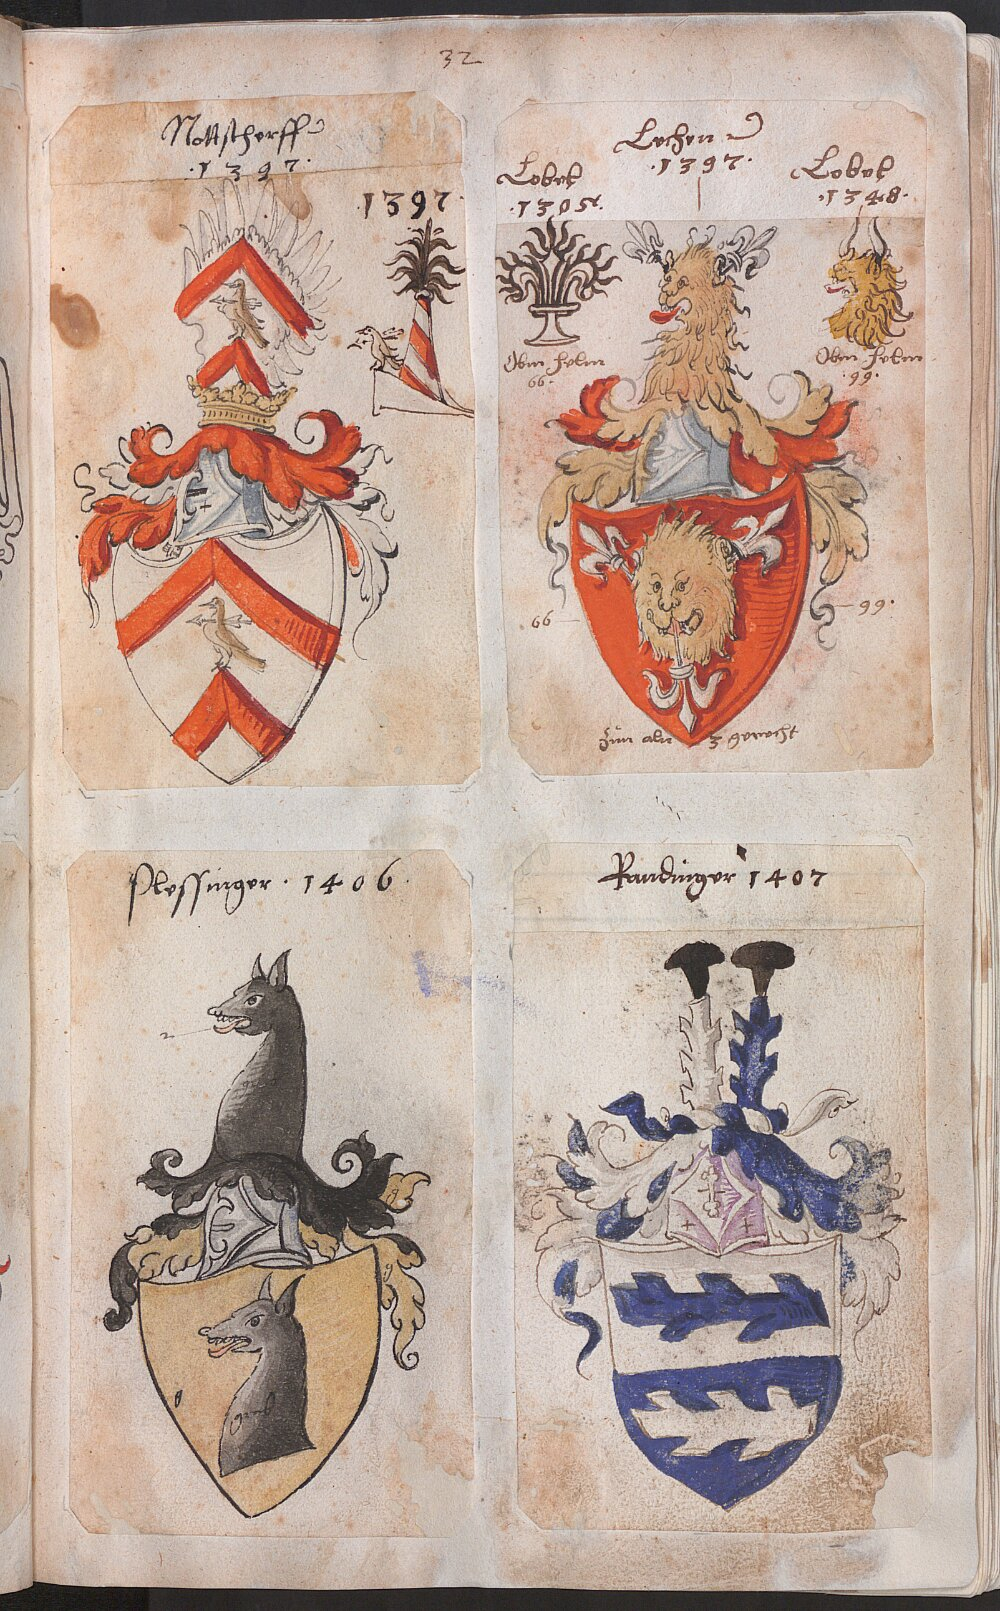 32
Nottscherff
·1397·
1397·
Lechen
·1397·
Lobek
·1305·
Lobek
·1348·
Obm helm
66·
Obm helm
·99·
66
99·
Zům aln 3 gerecht
Plessinger · 1406·
2
Raudinger 1407